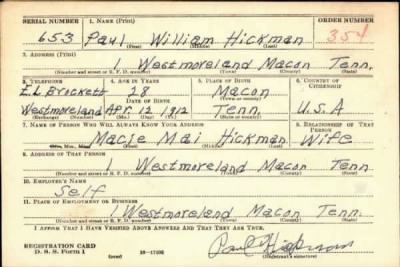 SERIAL NUMBER 1. NAME (Print) ORDER NUMBER
653 Paul William Hickman 354
(First) (Middle) (Last)
3. ADDRESS (Print)
1 Westmoreland Macon Tenn.
(Number and street or R. F. D. number) (Town) (County) (State)
3. TELEPHONE 4. AGE IN YEARS 5. PLACE OF BIRTH 6. COUNTRY OF CITIZENSHIP
E.L Brockett 28 Macon
DATE OF BIRTH (Town or county)
Westmoreland Apr 12 1912 Tenn U.S.A
(Exchange) (Number) (Mo.) (Day) (Yr.) (State or country)
7. NAME OF PERSON WHO WILL ALWAYS KNOW YOUR ADDRESS 8. RELATIONSHIP OF THAT PERSON
Macie Mai Hickman Wife
(Mr., Mrs., Miss) (First) (Middle) (Last)
9. ADDRESS OF THAT PERSON
Westmoreland Macon Tenn
(Number and street or R. F. D. number) (Town) (County) (State)
10. EMPLOYER'S NAME
Self
11. PLACE OF EMPLOYMENT OR BUSINESS
1 Westmoreland Macon Tenn.
(Number and street or R. F. D. number) (Town) (County) (State)
I AFFIRM THAT I HAVE VERIFIED ABOVE ANSWERS AND THAT THEY ARE TRUE.
REGISTRATION CARD
D. S. S. Form 1 (over) 16-17105 Paul